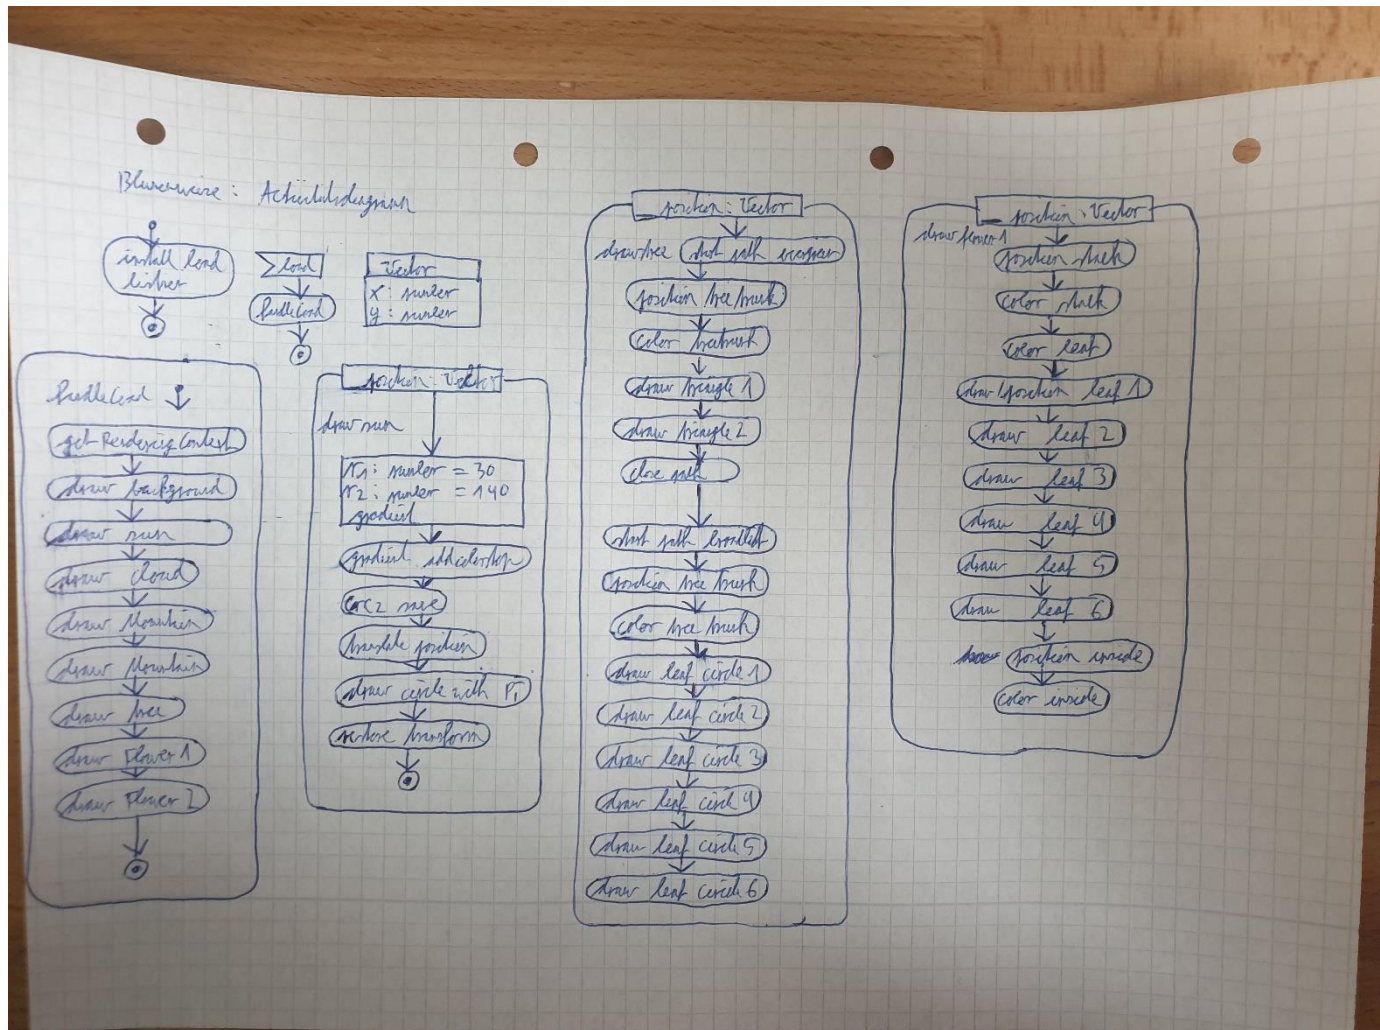 Blumenwiese: Activitätsdiagramm
install load
listner
load
handleLoad
Vector
x: number
y: number
handleLoad
getRenderingContext
draw background
draw sun
draw cloud
draw Mountain
draw Mountain
draw tree
draw Flower 1
draw Flower 2
position: Vector
draw sun
r1: number = 30
r2: number = 140
gradient
gradient addcolorstop
crc2 save
translate position
draw circle with r1
restore transform
position: Vector
drawtree
start path evergreen
position tree trunk
color treetrunk
draw triangle 1
draw triangle 2
close path
start path broadleaf
position tree trunk
color tree trunk
draw leaf circle 1
draw leaf circle 2
draw leaf circle 3
draw leaf circle 4
draw leaf circle 5
draw leaf circle 6
position: Vector
draw flower 1
position stalk
color stalk
color leaf
draw/position leaf 1
draw leaf 2
draw leaf 3
draw leaf 4
draw leaf 5
draw leaf 6
position inside
color inside